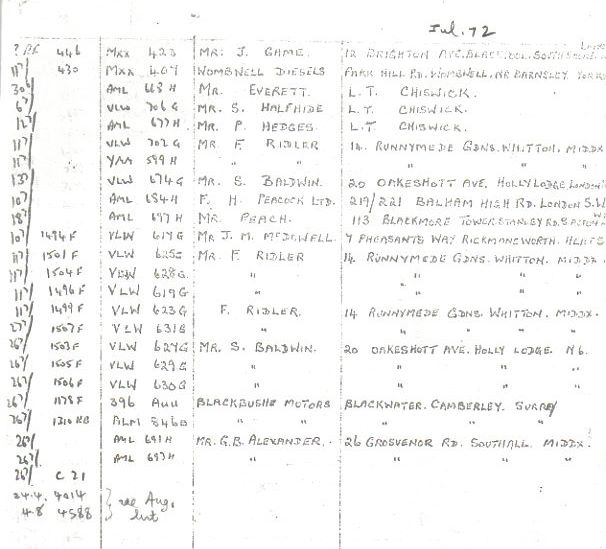 Jul. 72
446 MXX 423 MR. J. GAME. 12 BRIGHTON AVE.
11/7/ 430 MXX 407 WOMBWELL DIESELS PARK HILL RD. WOMBWELL. NR BARNSLEY. YORKS
AML 668H MR. EVERETT. L.T. CHISWICK.
VLW 706G MR. S. HALFHIDE L.T. CHISWICK.
12/7/ AML 677H MR. P. HEDGES. L.T. CHISWICK.
11/7/ VLW 702G MR. F. RIDLER 14. RUNNYMEDE GDNS. WHITTON. MIDDX
11/7/ YAA 599H " " " "
13/7/ VLW 674G MR. S. BALDWIN. 20 OAKESHOTT AVE. HOLLY LODGE LONDON
10/7/ AML 684H F. H. PEACOCK LTD. 219/221 BALHAM HIGH RD. LONDON S.W
18/7/ AML 697H MR. PEACH. 113 BLACKMORE TOWER. STANLEY RD.
10/7/ 1494F VLW 617G MR J. M. McDOWELL. 7 PHEASANTS WAY RICKMANSWORTH. HERTS
11/7/ 1501F VLW 625G MR. F. RIDLER 14 RUNNYMEDE GDNS. WHITTON. MIDDX.
11/7/ 1504F VLW 628G " " "
11/7/ 1496F VLW 619G " " "
11/7/ 1499F VLW 623G F. RIDLER. 14 RUNNYMEDE GDNS. WHITTON. MIDDX.
1507F VLW 631G " " "
26/7/ 1503F VLW 627G MR. S. BALDWIN. 20 OAKESHOTT AVE. HOLLY LODGE. N6.
26/7/ 1505F VLW 629G " " "
26/7/ 1506F VLW 630G " " "
26/7/ 1178F 396 AUU BLACKBUSHE MOTORS BLACKWATER. CAMBERLEY. SURREY
26/7/ 1310 ALM 846B " " "
26/7/ AML 691H MR. G.B. ALEXANDER. 26 GROSVENOR RD. SOUTHALL. MIDDX.
26/7/ AML 693H " " "
26/7/ C 21
24.4. 4014 } see Aug.
4.8 4588 } list